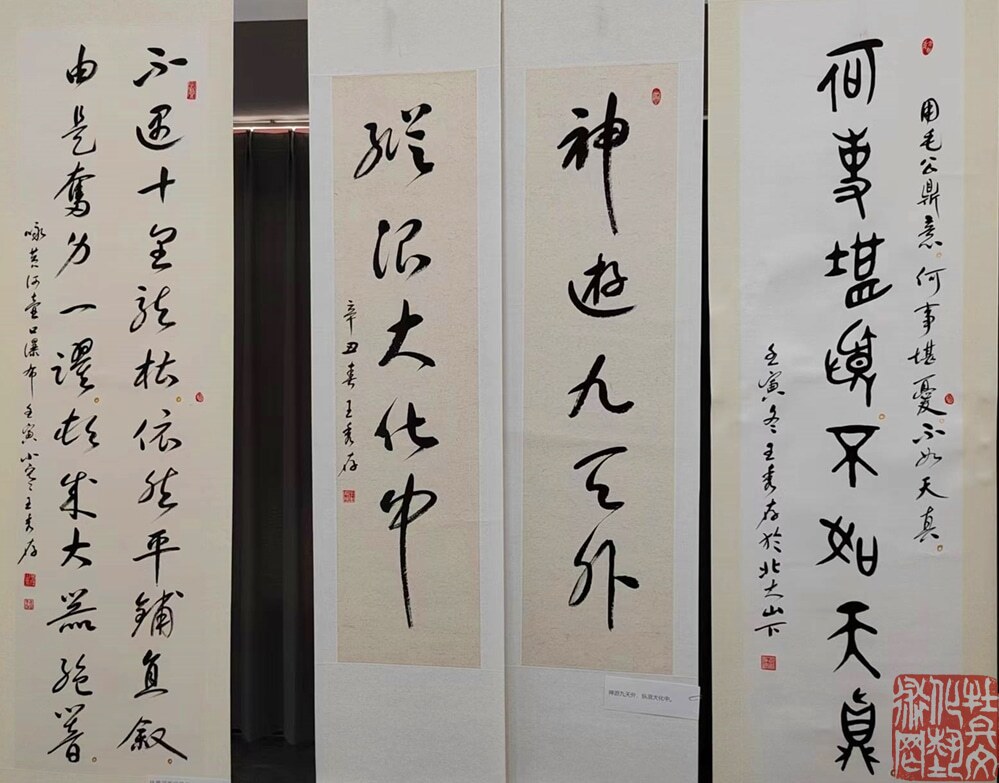 用毛公鼎意何事堪憂不如天真
何事堪憂不如天真
壬寅冬王秀存於北大山下
神遊九天外
縱浪大化中
辛丑春王秀存
神游九天外,纵浪大化中。
不遇十里龍槽依然平鋪直敘
由是奮力一躍頓成大器絕響
咏黃河壺口瀑布壬寅小寒王秀存